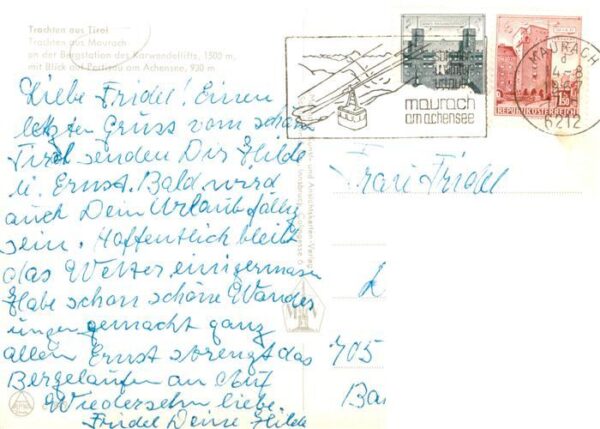 Trachten aus Tirol
Trachten aus Maurach
an der Bergstation des Karwendellifts, 1500 m,
mit Blick auf Pertisau am Achensee, 930 m
Liebe Fridel! Einen
letzten Gruss vom schön
Tirol senden Dir Hilde
u. Ernst. Bald wird
auch Dein Urlaub fällig
sein. Hoffentlich bleibt
das Wetter einigermasen
Habe schon schöne Wander
ungen gemacht ganz
allein Ernst strengt das
Bergelaufen an Auf
Wiedersehn liebe
Fridel Deine Hilde
maurach
am achensee
MAURACH
6212
REPUBLIK ÖSTERREICH
Frau Fridel
L
705
Ba